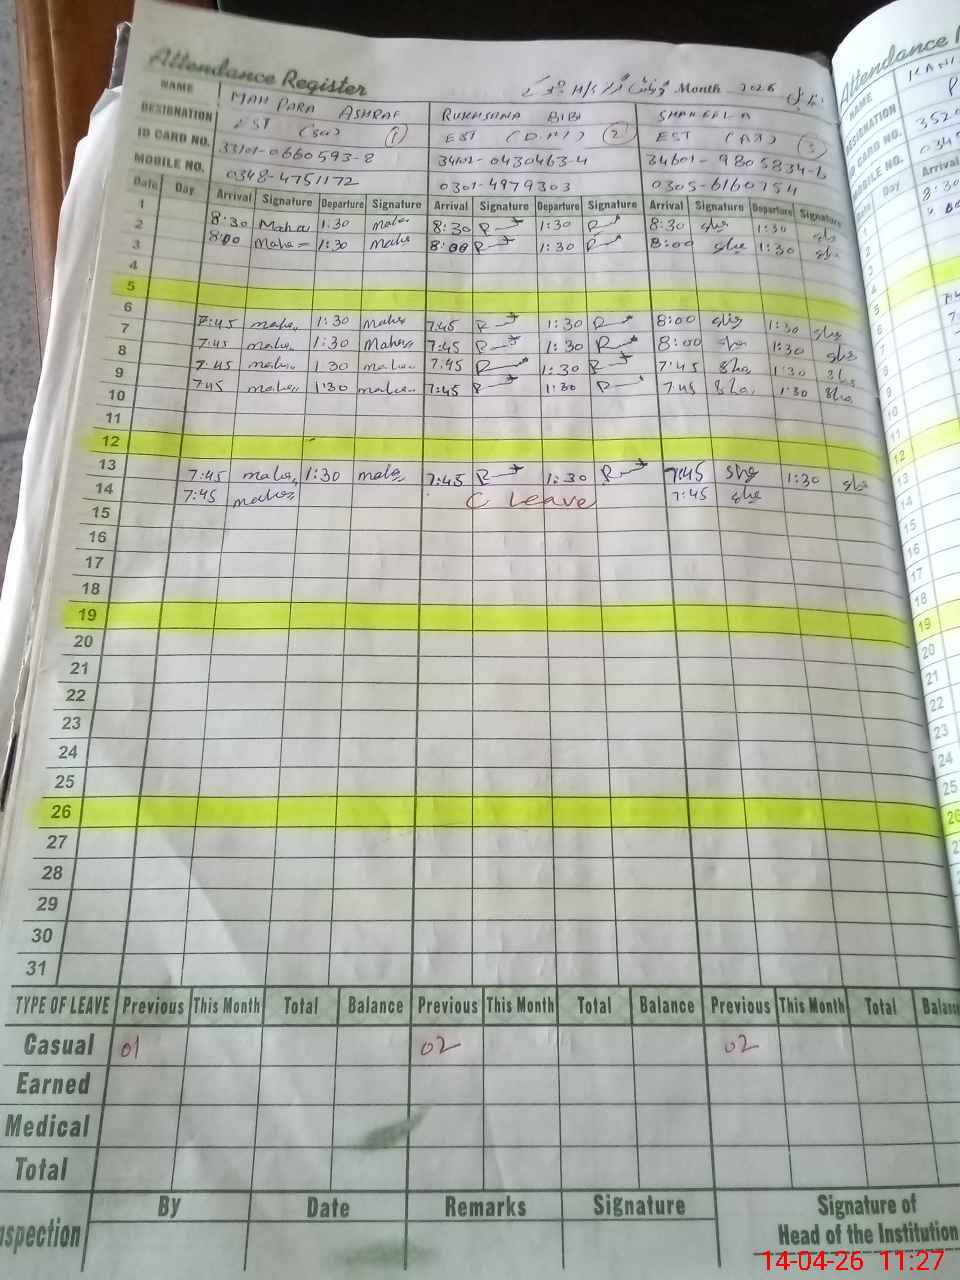 Attendance Register
Month 2026
NAME MAH PARA ASHRAF RUKHSANA BIBI SHAKEELA
DESIGNATION EST (Sci) 1 EST (D.M) 2 EST (A3) 3
ID CARD NO. 33101-0660593-8 34102-0430463-4 34601-9805834-6
MOBILE NO. 0348-4751172 0301-4979303 0305-6160754
Date Day Arrival Signature Departure Signature Arrival Signature Departure Signature Arrival Signature Departure Signature
1
2 8:30 Maha 1:30 maha 8:30 R 1:30 R 8:30 she 1:30 she
3 8:00 Maha 1:30 maha 8:00 R 1:30 R 8:00 she 1:30 she
4
5
6
7 7:45 maha 1:30 Maha 7:45 R 1:30 R 8:00 she 1:30 she
8 7:45 maha 1:30 Maha 7:45 R 1:30 R 8:00 sha 1:30 she
9 7:45 maha 1 30 maha 7:45 R 1:30 R 7:45 Sha 1:30 Sha
10 7:45 maha 1:30 maha 7:45 R 1:30 R 7:45 Sha 1:30 Sha
11
12
13 7:45 maha 1:30 maha 7:45 R 1:30 R 7:45 she 1:30 she
14 7:45 maha C Leave 7:45 she
15
16
17
18
19
20
21
22
23
24
25
26
27
28
29
30
31
TYPE OF LEAVE Previous This Month Total Balance Previous This Month Total Balance Previous This Month Total Balance
Casual 01 02 02
Earned
Medical
Total
By Date Remarks Signature Signature of
Inspection Head of the Institution
14-04-26 11:27